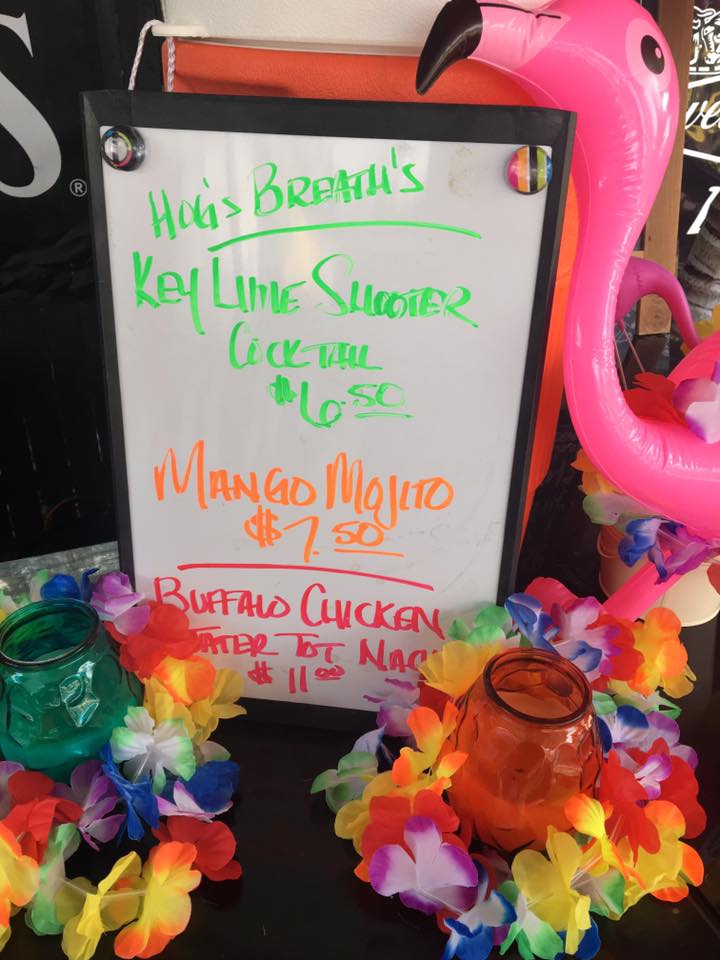 S®
Hog's BREATH's
KEY LIME SHOOTER
COCKTAIL
$6.50
MANGO MOJITO
$7.50
BUFFALO CHICKEN
TATER TOT NAC
$11.00